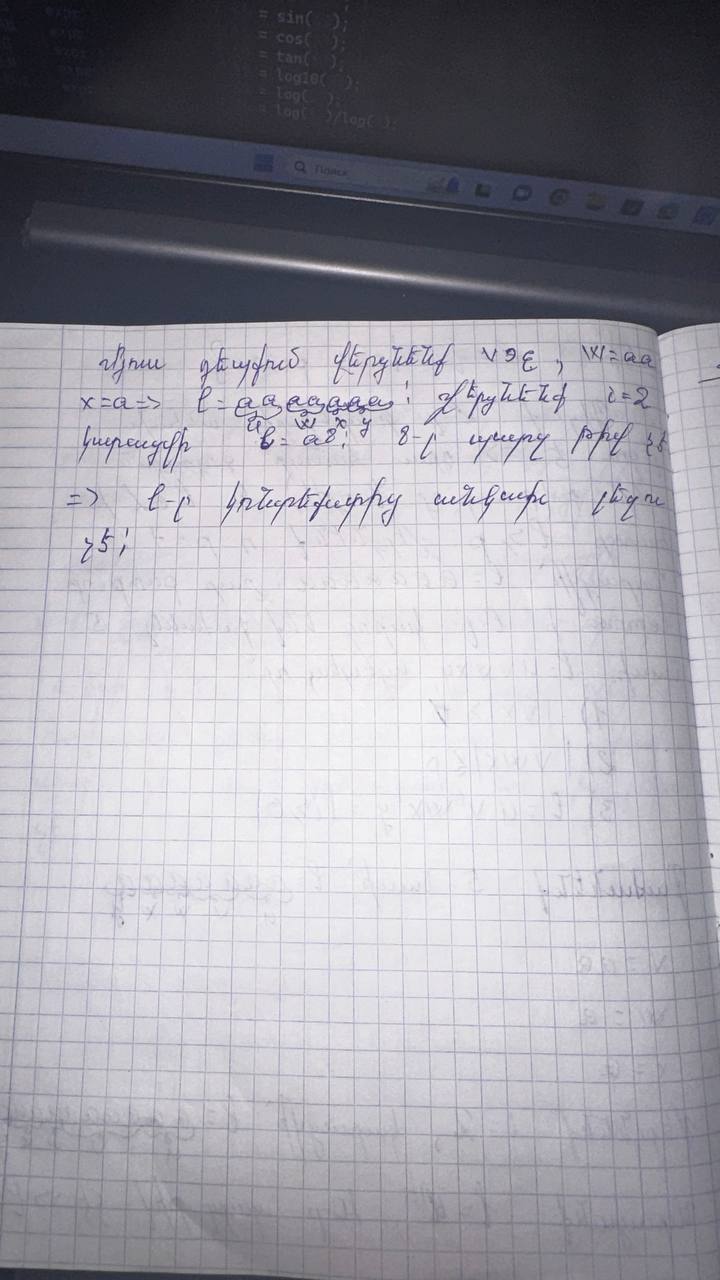 = sin( );
= cos( );
= tan( );
= log10( );
= log( );
= log( )/log( );
Поиск
մյուս դեպքում վերցնենք v=ε, w=aa
x=a=> l=aaaaaaa: վերցնենք i=2
կստանանք l=a8; 8-ը պարզ թիվ չէ
=> l-ը կոնտեքստից անկախ լեզու
չէ: